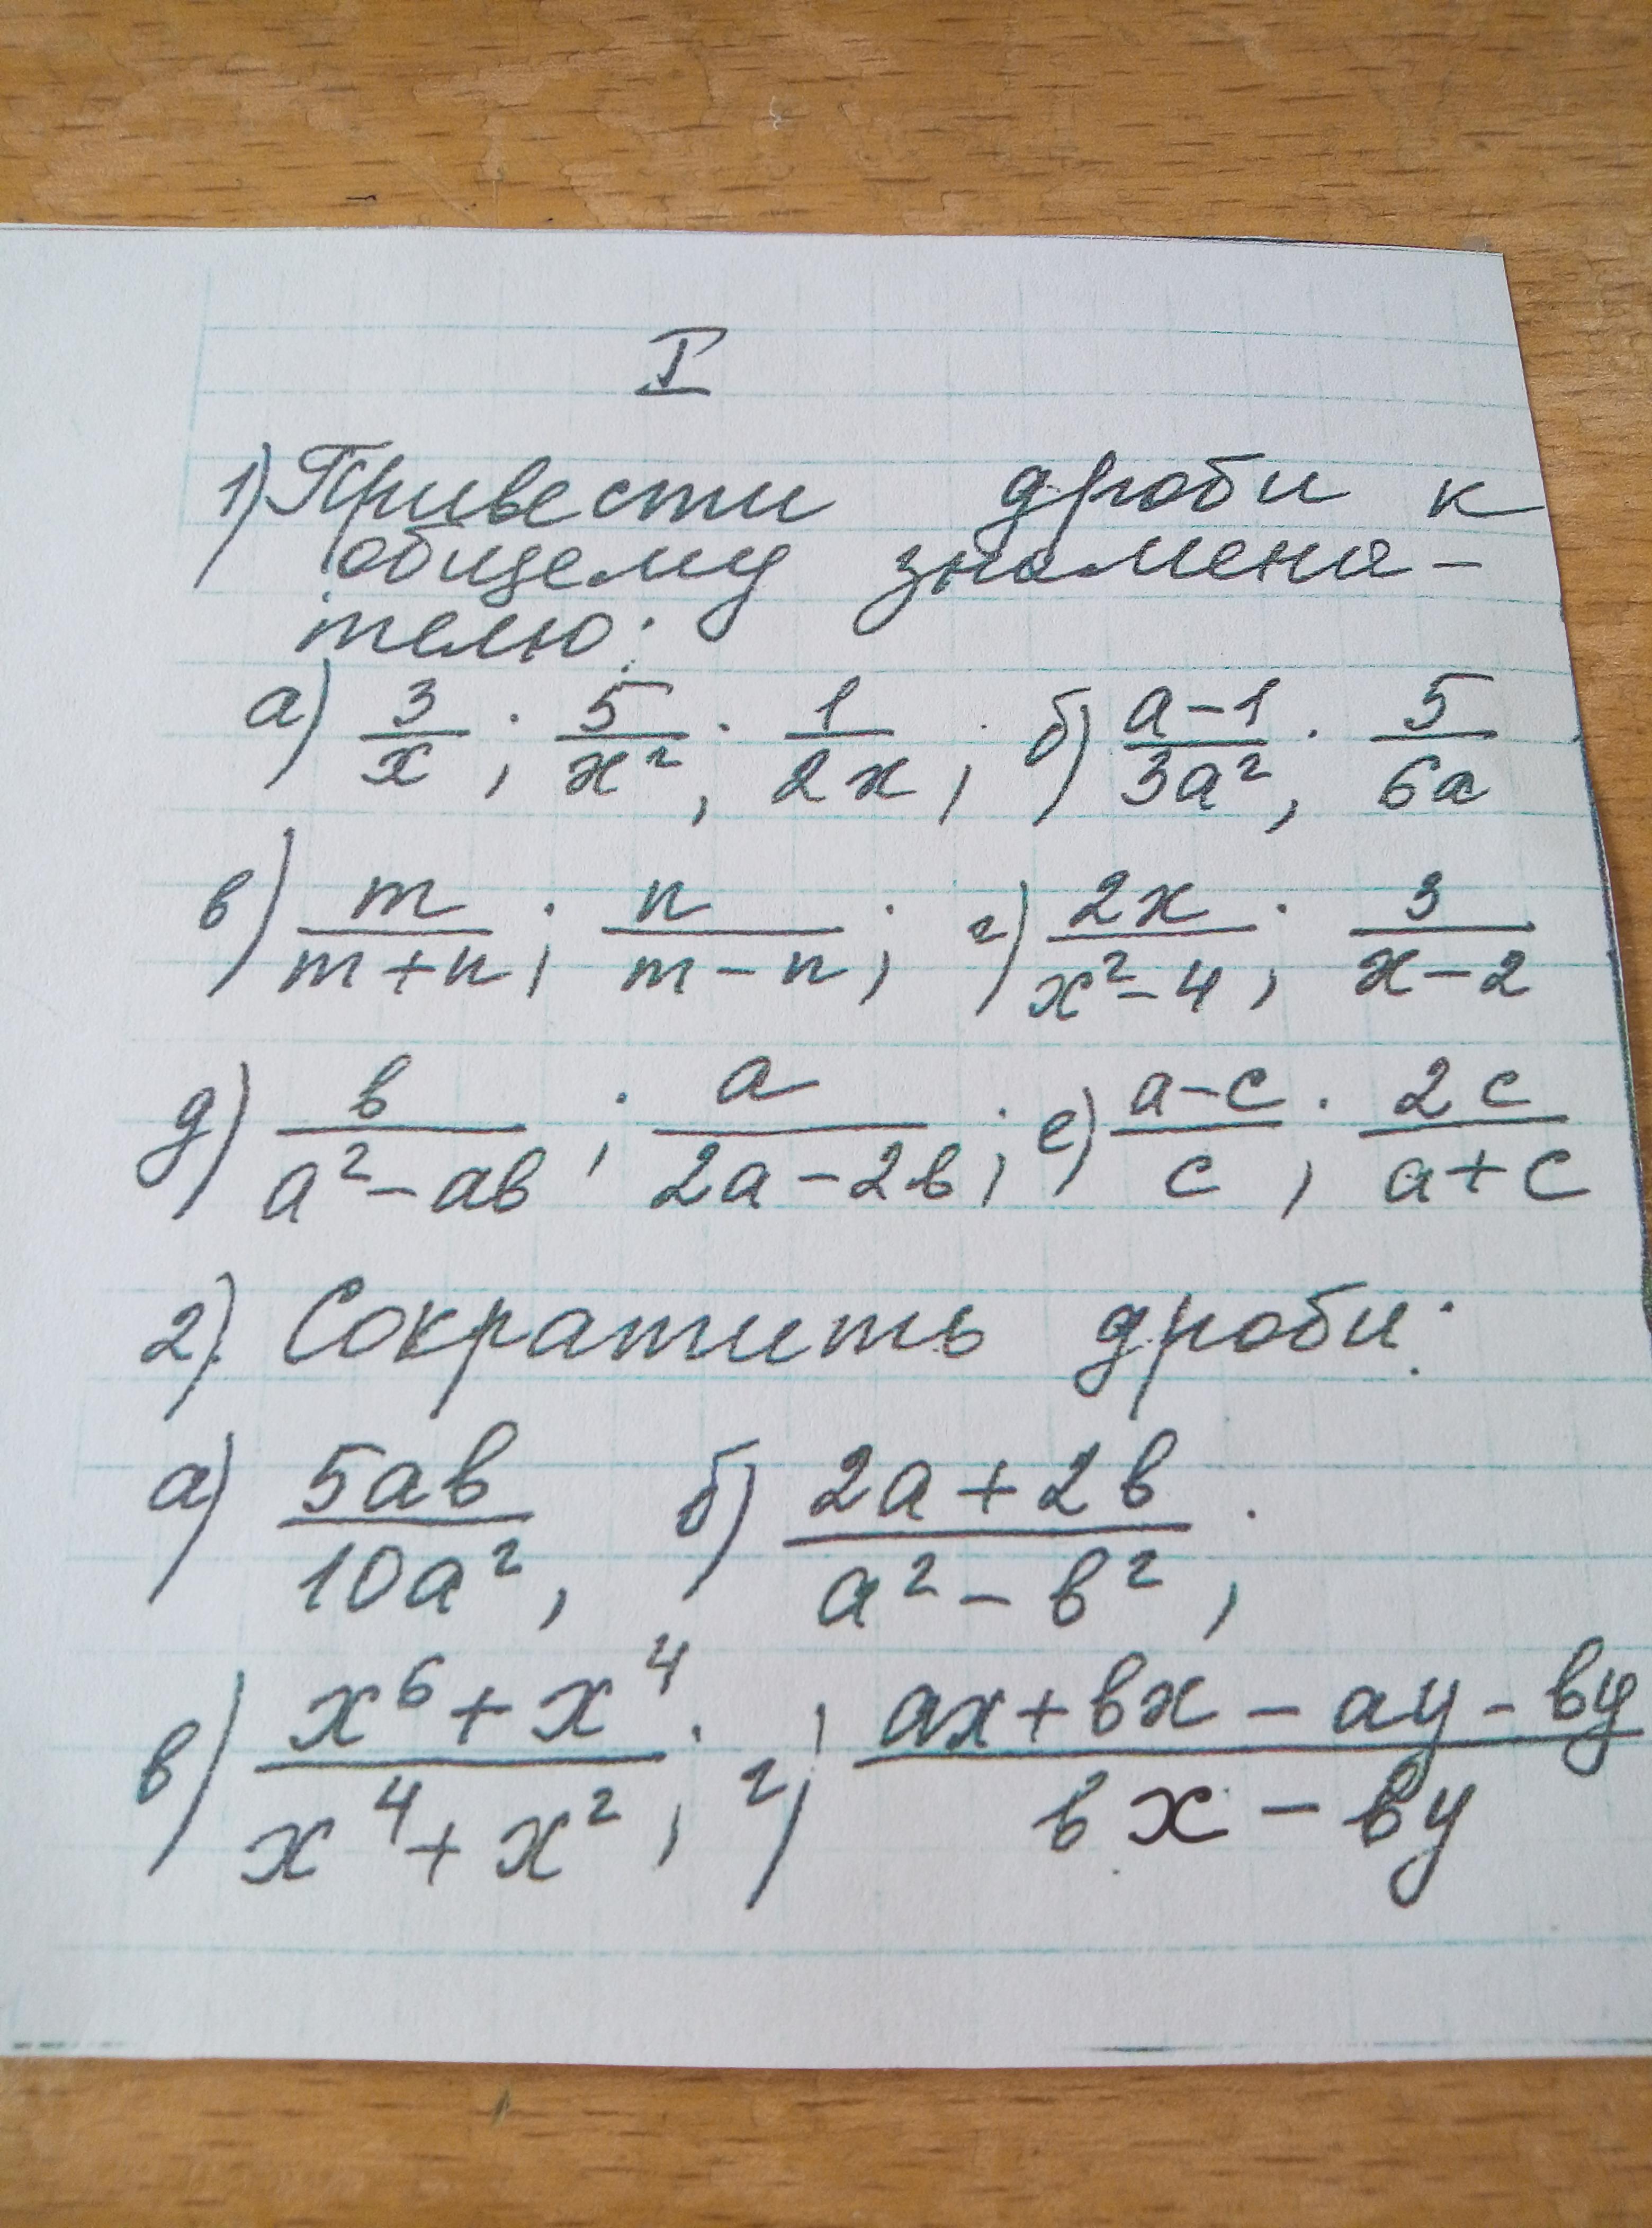 I
1) Привести дроби к
общему знамена-
телю:
а) 3/x ; 5/x² ; 1/2x ; б) a-1/3a² ; 5/6a
в) m/m+n ; n/m-n ; г) 2x/x²-4 ; 3/x-2
д) в/a²-aв ; a/2a-2в ; е) a-c/c ; 2c/a+c
2). Сократить дроби:
а) 5aв/10a² , б) 2a+2в/a²-в² ;
в) x⁶+x⁴/x⁴+x² ; г) ax+вx-ay-вy/вx-вy